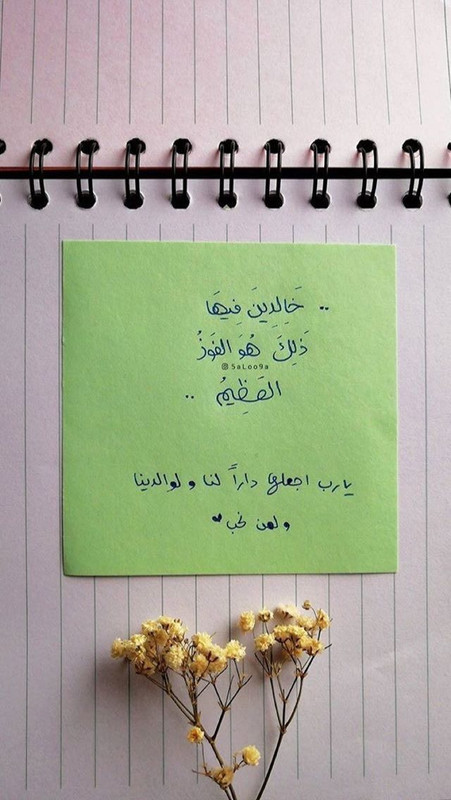 .. خَالِدِينَ فِيهَا
ذَلِكَ هُوَ الفَوزُ
5aLoo9a
العَظِيمُ ..
يارب اجعلها داراً لنا و لوالدينا
و لمن نحب ♥